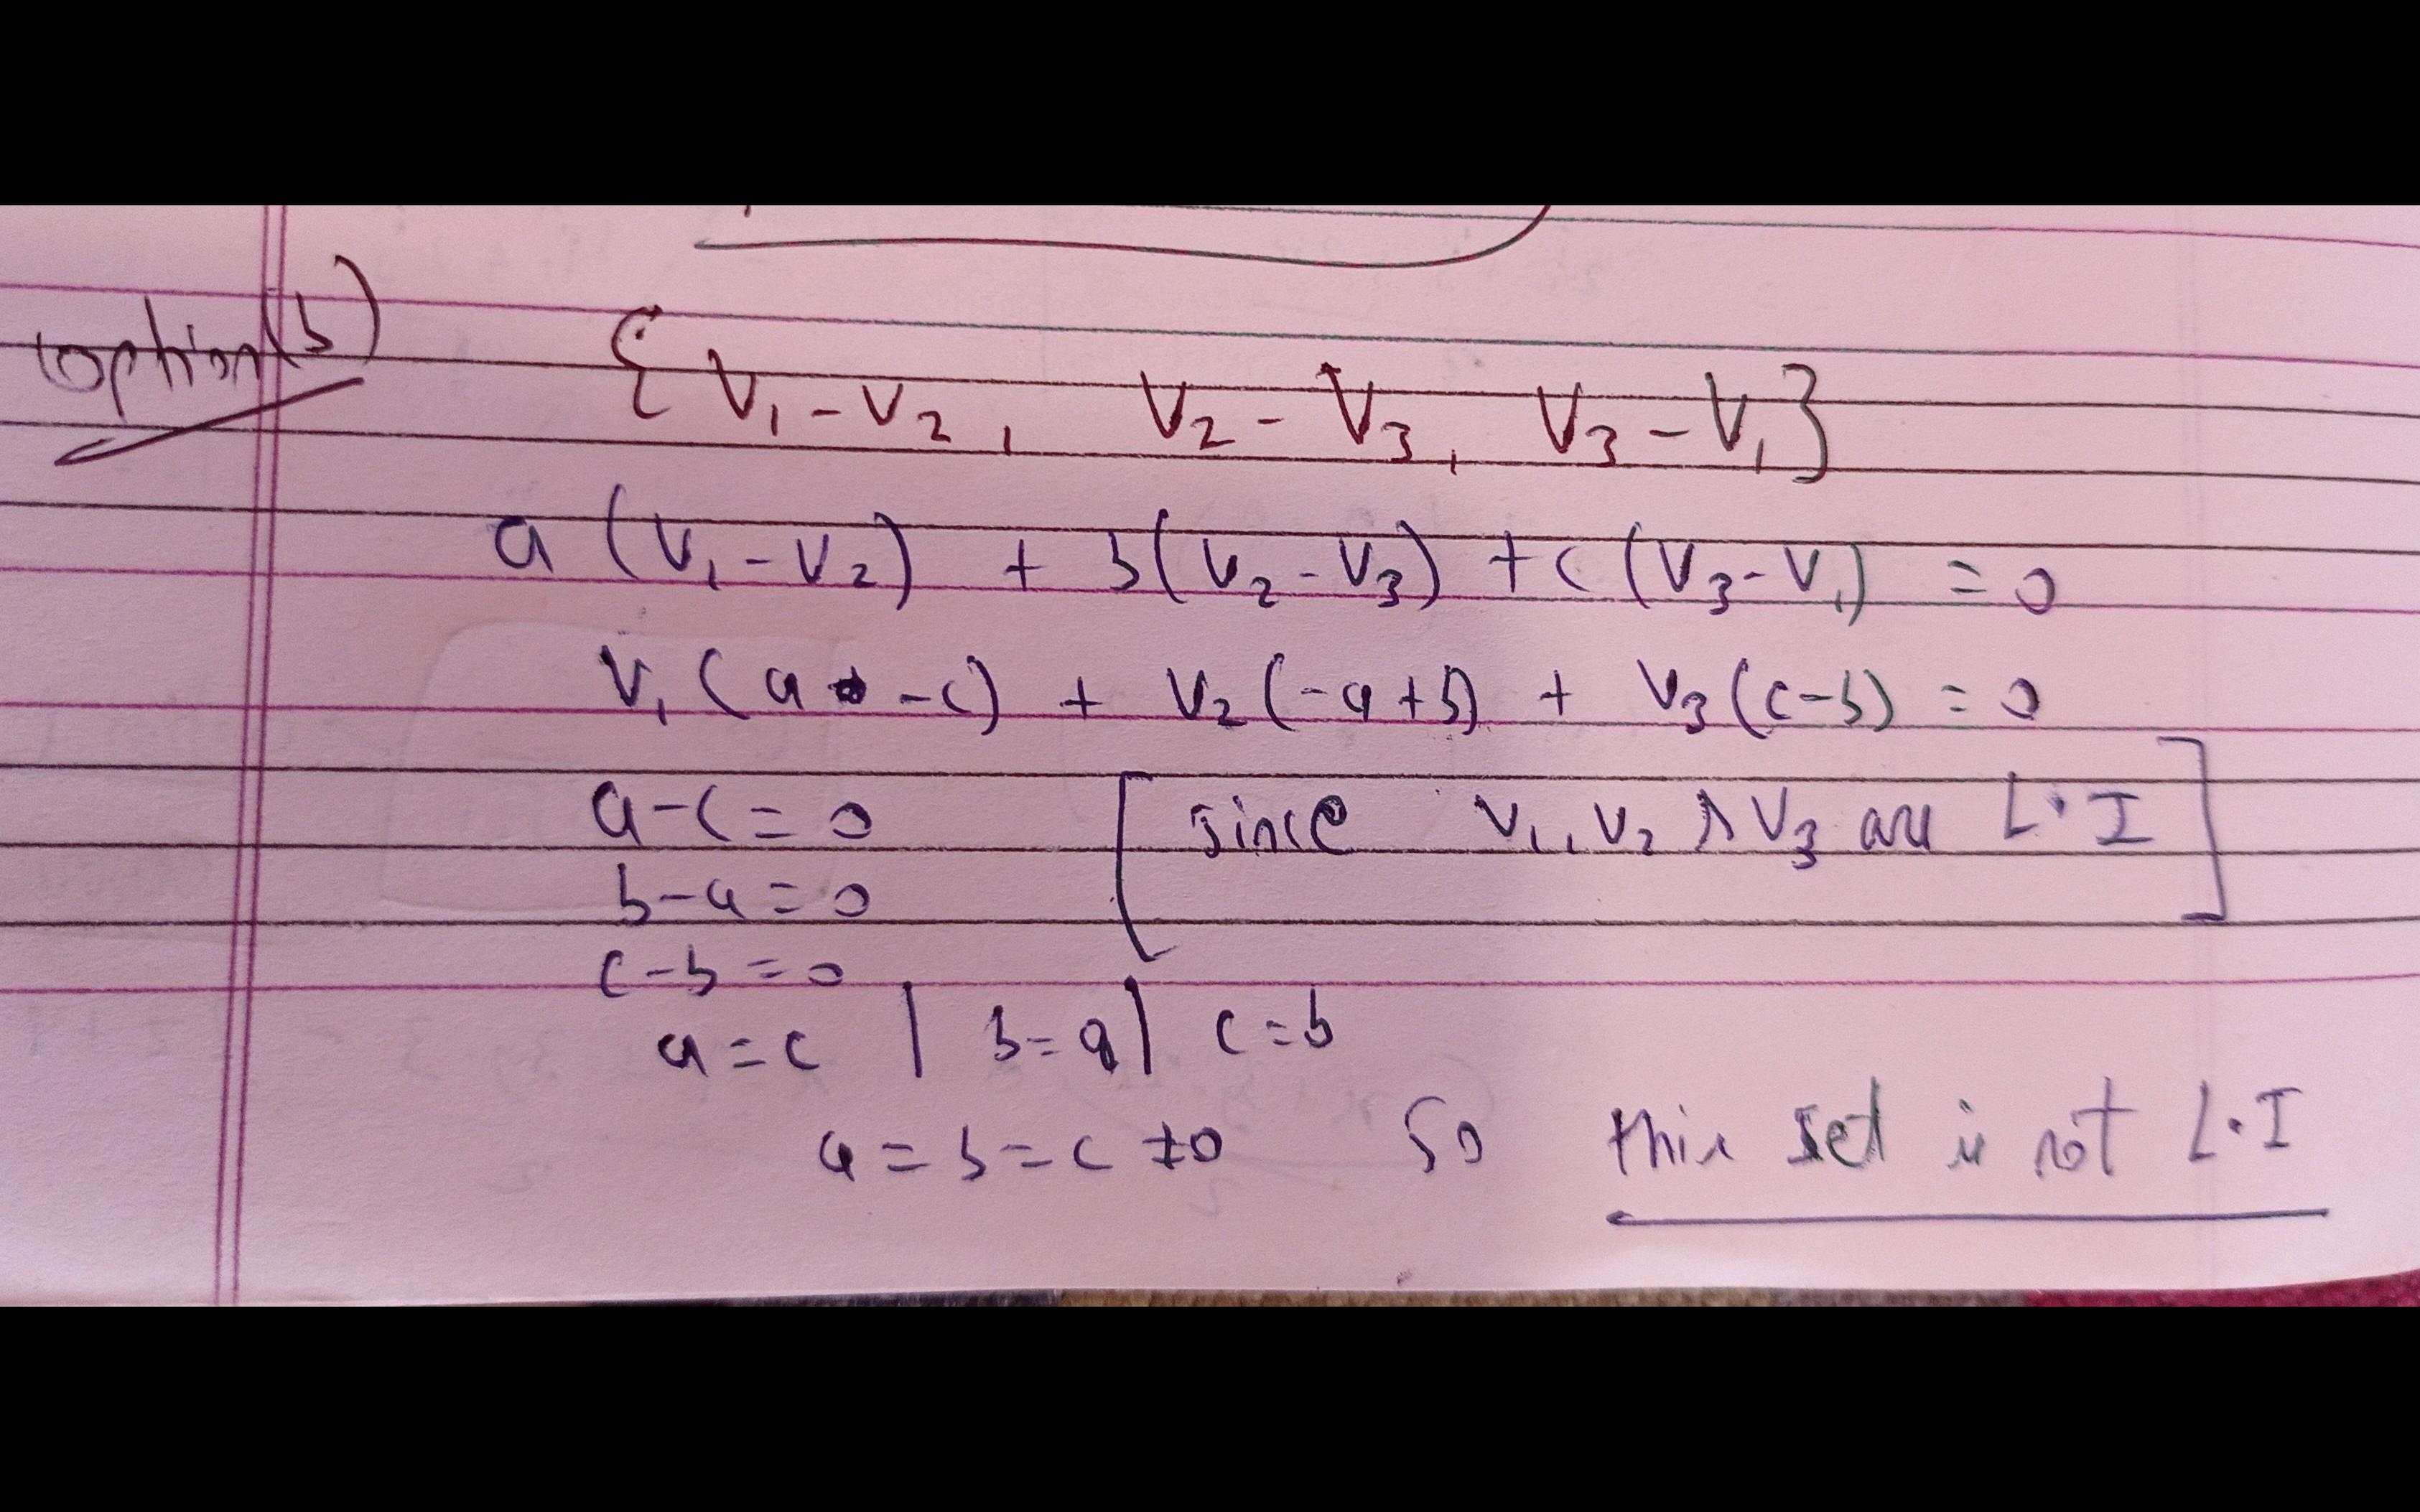 option(b) { V₁-V₂, V₂-V₃, V₃-V₁}
a (V₁-V₂) + b(V₂-V₃) +c (V₃-V₁) = 0
V₁ (a -c) + V₂ (-a+b) + V₃ (c-b) = 0
a-c=0 [since V₁, V₂ & V₃ are L.I]
b-a=0
c-b=0
a=c | b=a | c=b
a=b=c≠0 So this set is not L.I